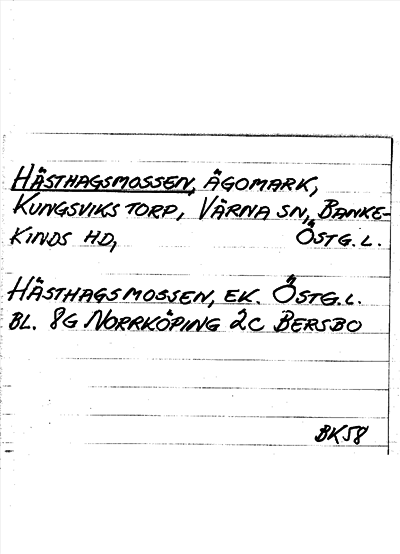 HÄSTHAGSMOSSEN, ÄGOMARK,
KUNGSVIKS TORP, VÄRNA SN, BANKE-
KINDS HD, ÖSTG. L.
HÄSTHAGSMOSSEN, EK. ÖSTG. L.
BL. 8G NORRKÖPING 2C BERSBO
BK58